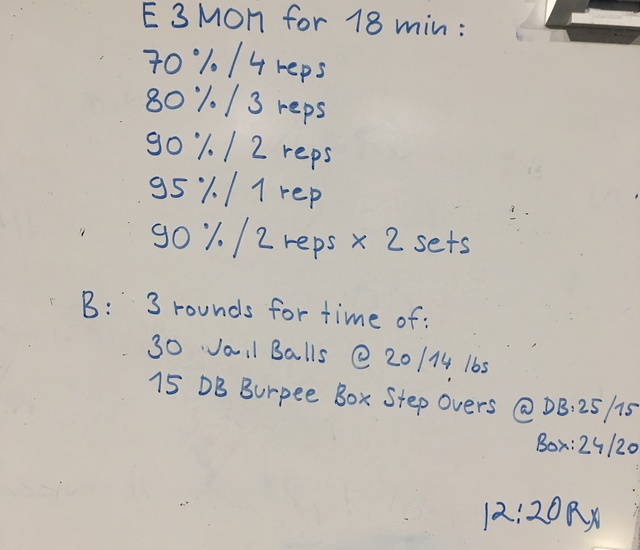 E 3 MOM for 18 min:
70 % / 4 reps
80 % / 3 reps
90 % / 2 reps
95 % / 1 rep
90 % / 2 reps x 2 sets
B: 3 rounds for time of:
30 Wall Balls @ 20/14 lbs
15 DB Burpee Box Step Overs @ DB:25/15
Box:24/20
12:20 Rx